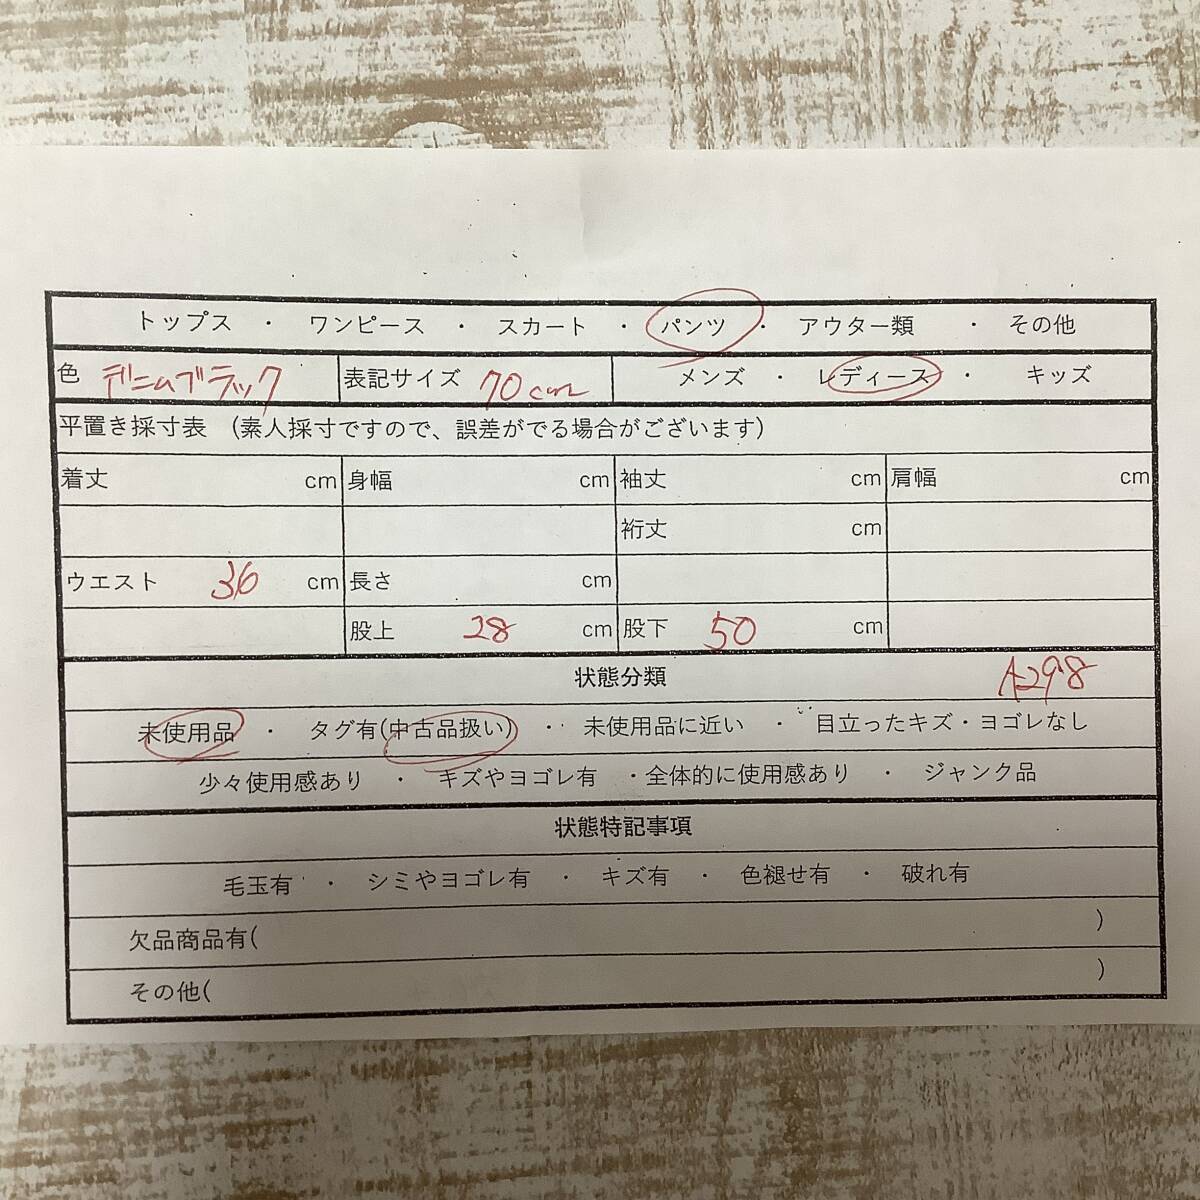 トップス ・ ワンピース ・ スカート ・ パンツ ・ アウター類 ・ その他
色 デニムブラック 表記サイズ 70cm メンズ ・ レディース ・ キッズ
平置き採寸表 (素人採寸ですので、誤差がでる場合がございます)
着丈 cm 身幅 cm 袖丈 cm 肩幅 cm
裄丈 cm
ウエスト 36 cm 長さ cm
股上 28 cm 股下 50 cm
状態分類 A298
未使用品 ・ タグ有(中古品扱い) ・ 未使用品に近い ・ 目立ったキズ・ヨゴレなし
少々使用感あり ・ キズやヨゴレ有 ・全体的に使用感あり ・ ジャンク品
状態特記事項
毛玉有 ・ シミやヨゴレ有 ・ キズ有 ・ 色褪せ有 ・ 破れ有
欠品商品有( )
その他( )